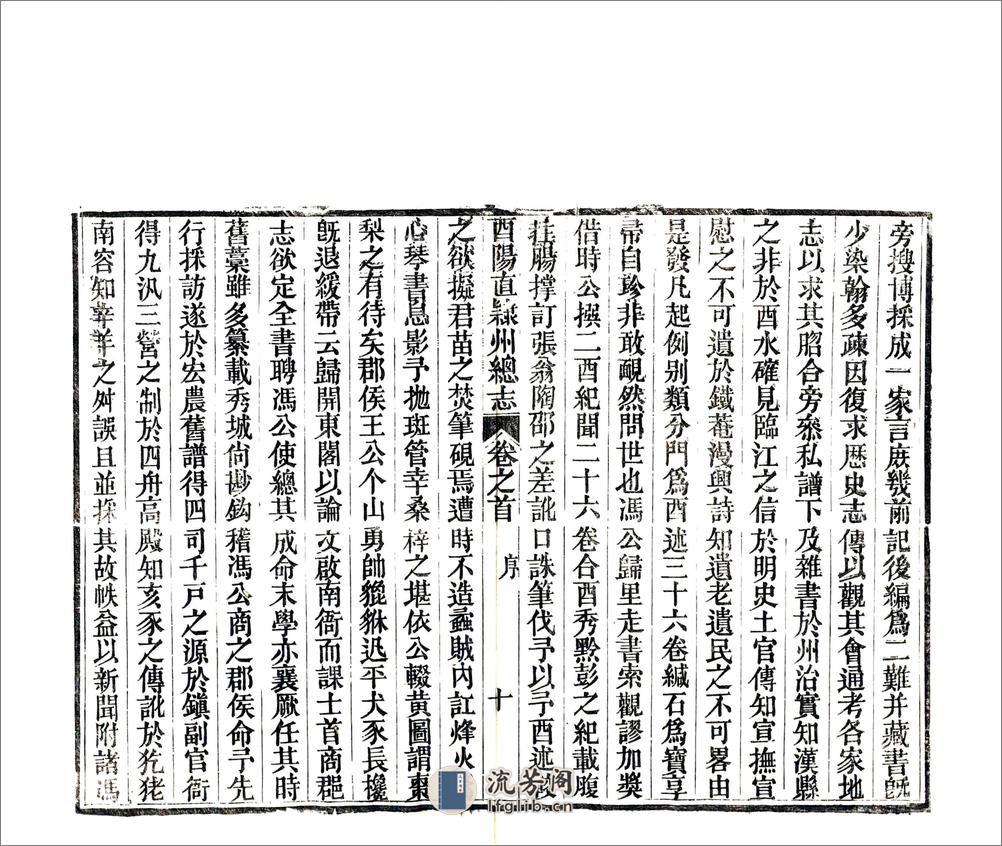 旁搜博採成一家言庶幾前記後編爲二難并藏書旣
少染翰多疎因復求歷史志傳以觀其會通考各家地
志以求其脗合旁叅私譜下及雜書於州治實知漢縣
之非於酉水確見臨江之信於明史土官傳知宣撫宣
慰之不可遺於鐵菴漫興詩知遺老遺民之不可畧由
是發凡起例别類分門爲酉述三十六卷緘石爲寶享
帚自珍非敢靦然問世也馮公歸里走書索觀謬加奬
借時公撰二酉紀聞二十六卷合酉秀黔彭之紀載腹
茬腸撑訂張翁陶邵之差訛口誅筆伐予以予酉述
酉陽直隸州總志 卷之首 序 十
之欲擬君苗之焚筆硯焉遭時不造蟊賊內訌烽火
心琴書息影予抛斑管幸桑梓之堪依公輟黃圖謂棗
梨之有待矣郡侯王公个山勇帥貔貅迅平犬豕長攙
旣退緩帶云歸開東閣以論文啟南衙而課士首商郡
志欲定全書聘馮公使總其成命末學亦襄厥任其時
舊藁雖多纂載秀城尙尠鈎稽馮公商之郡侯命予先
行採訪遂於宏農舊譜得四司千戸之源於鎭副官衙
得九汛三營之制於四舟高殿知亥豕之傳訛於犵狫
南容知䍧羊之舛誤且並採其故帙益以新聞附諸馮
流芳阁
lfglib.cn